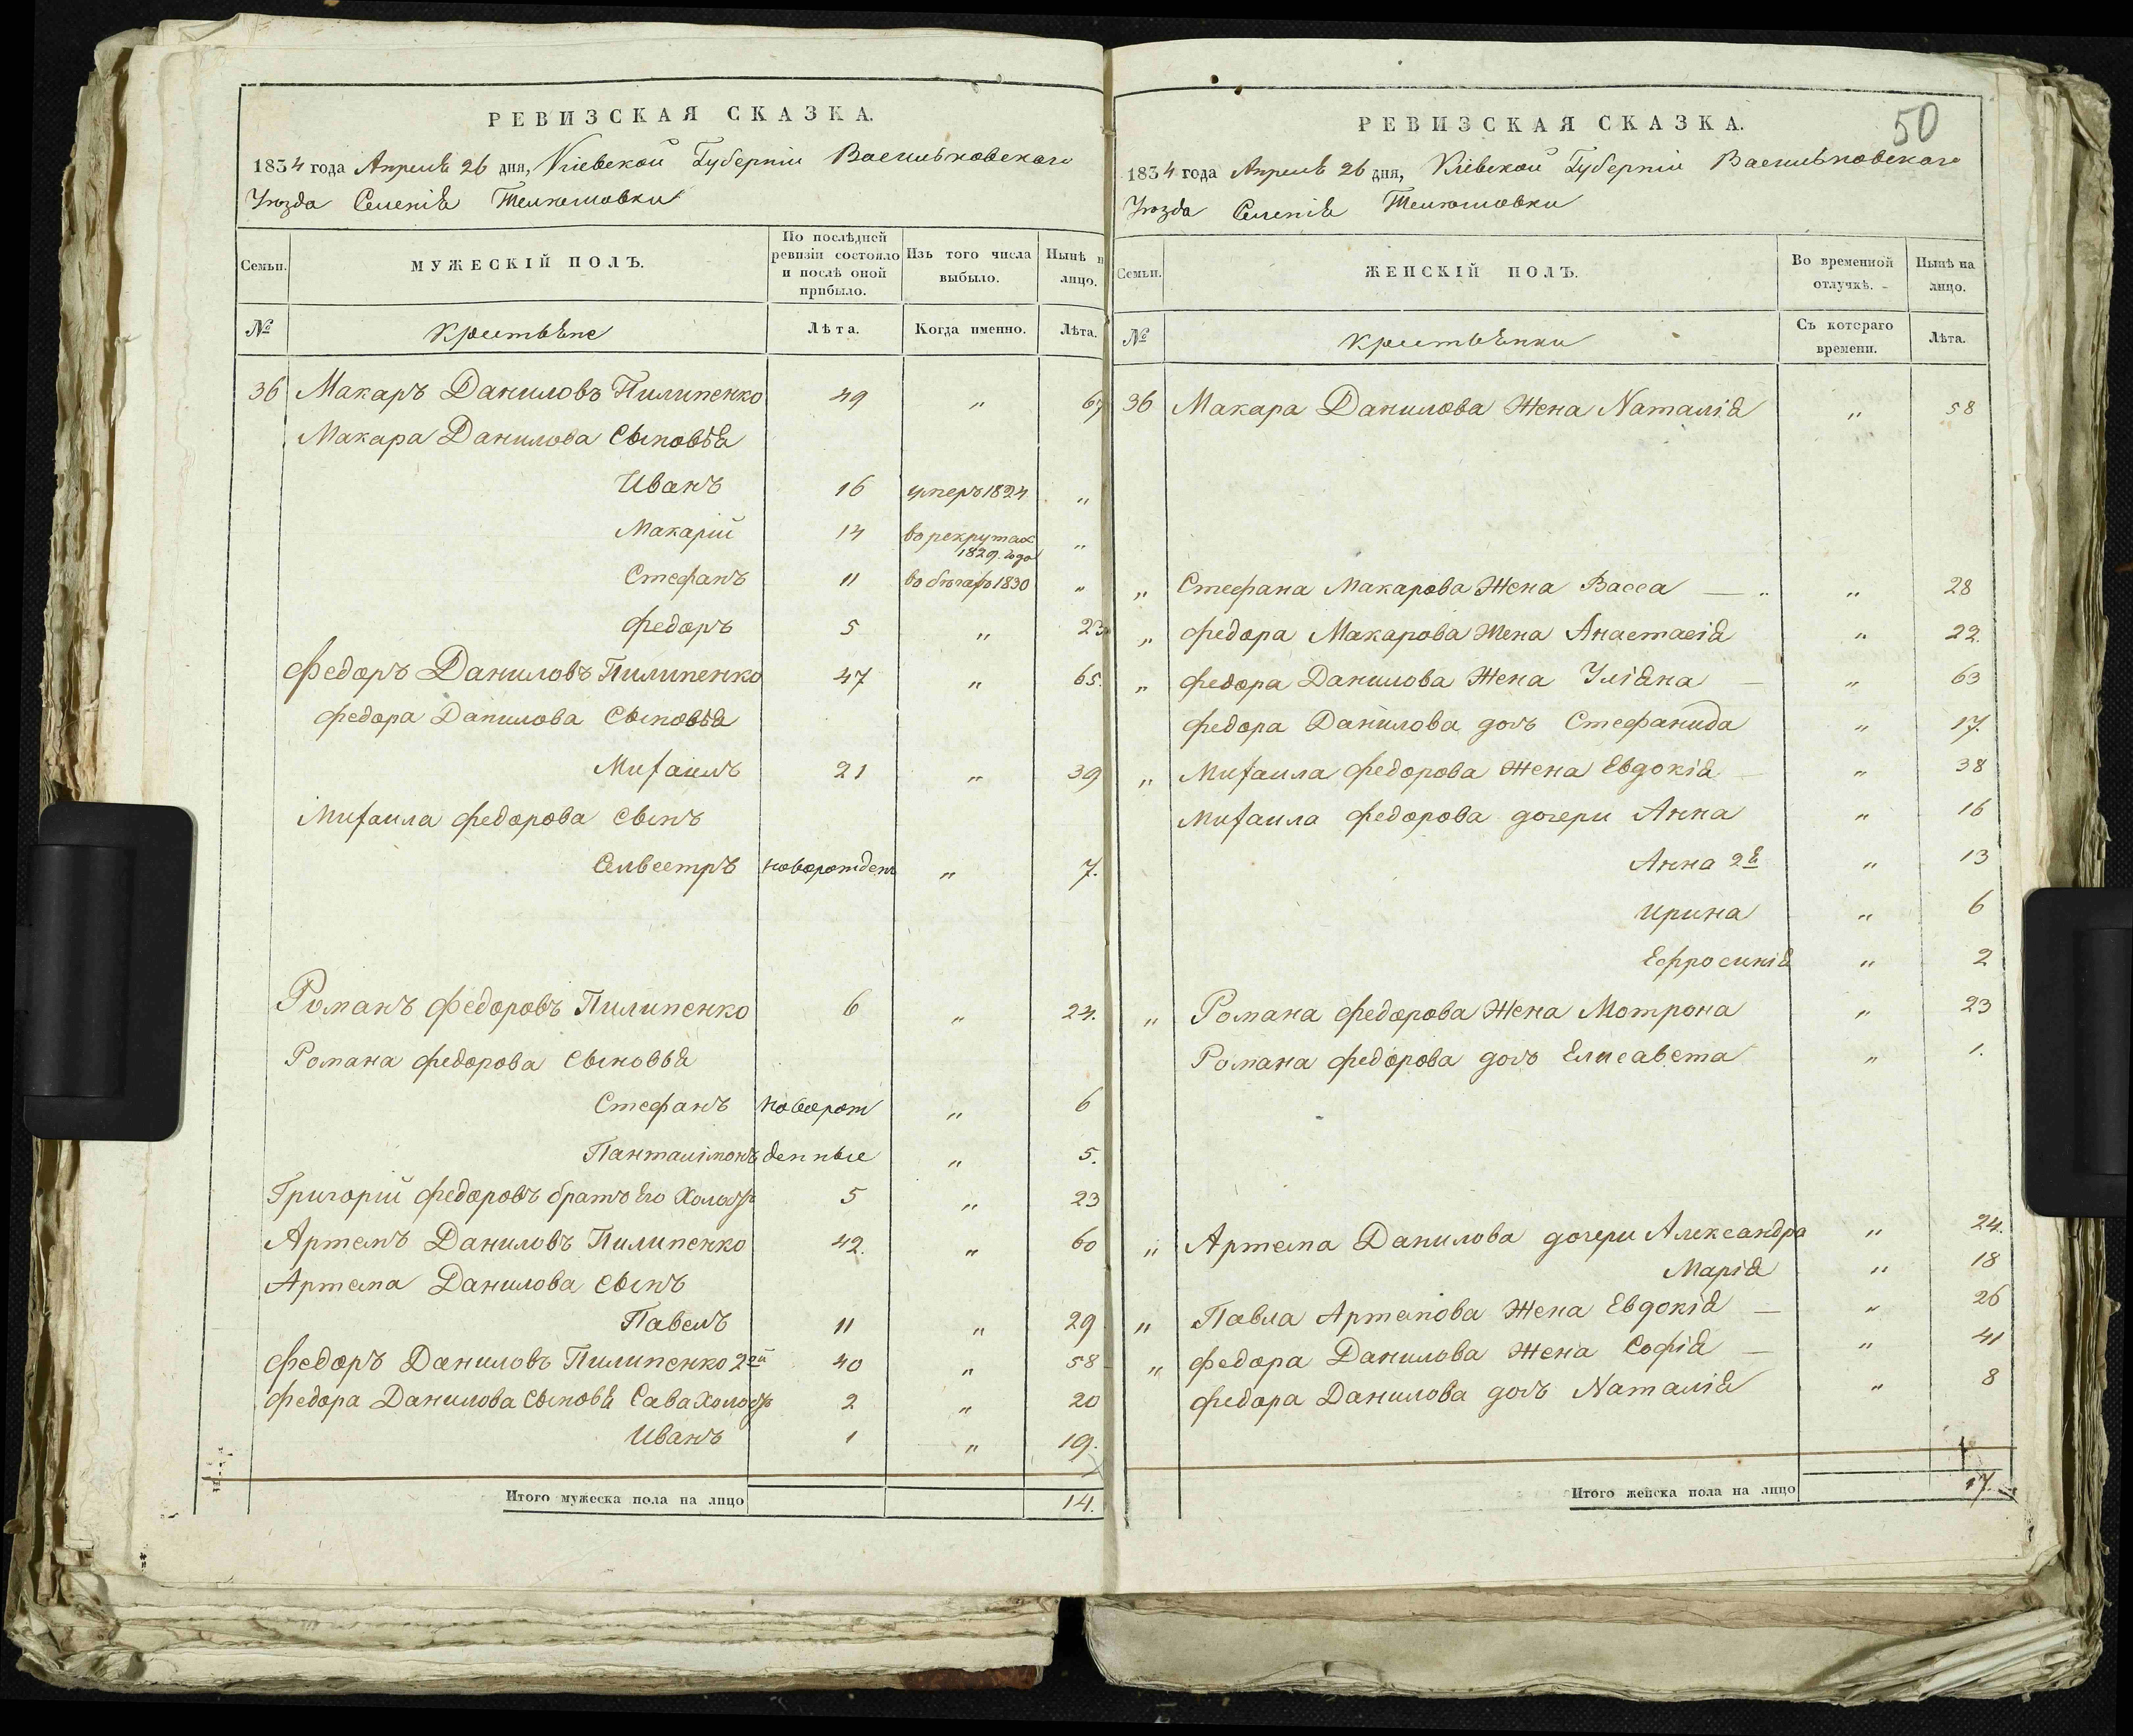 РЕВИЗСКАЯ СКАЗКА.
1834 года Апреля 26 дня, Кіевской Губерніи Васильковского
Уѣзда Селенія
Семьи.
МУЖЕСКІЙ ПОЛЪ.
По послѣдней ревизіи состояло и послѣ оной прибыло.
Изъ того числа выбыло.
Нынѣ н лицо.
№
Крестьяне
Лѣта.
Когда именно.
Лѣта.
36 Макаръ Даниловъ Пилипенко 49 „ 67
Макара Данилова Сыновья
Иванъ 16 умеръ 1824 „
Макарій 14 во рекрутах 1829. года „
Стефанъ 11 во бѣгахъ 1830 „
Федоръ 5 „ 23
Федоръ Даниловъ Пилипенко 47 „ 65.
Федора Данилова Сыновья
Михаилъ 21 „ 39
Михаила Федорова Сынъ
Силвестръ новорожден „ 7.
Романъ Федоровъ Пилипенко 6 „ 24.
Романа Федорова Сыновья
Стефанъ новорож „ 6
Панталімонъ денные „ 5.
Григорій Федоровъ братъ Его Холост 5 „ 23
Артемъ Даниловъ Пилипенко 42. „ 60
Артема Данилова Сынъ
Павелъ 11 „ 29
Федоръ Даниловъ Пилипенко 2ой 40 „ 58
Федора Данилова Сыновья Сава Холост 2 „ 20
Иванъ 1 „ 19.
Итого мужеска пола на лицо 14.
50
РЕВИЗСКАЯ СКАЗКА.
1834 года Апреля 26 дня, Кіевской Губерніи Васильковского
Уѣзда Селенія
Семьи.
ЖЕНСКІЙ ПОЛЪ.
Во временной отлучкѣ.
Нынѣ на лицо.
№
Крестьянки
Съ котораго времени.
Лѣта.
36 Макара Данилова Жена Наталія „ 58
„ Стефана Макарова Жена Васса — „ „ 28
„ Федора Макарова Жена Анастасія „ 22.
„ Федора Данилова Жена Уліяна — „ 63
Федора Данилова дочь Стефанида „ 17.
„ Михаила Федорова Жена Евдокія — „ 38
Михаила Федорова дочери Анна „ 16
Анна 2я „ 13
Ирина „ 6
Ефросинія „ 2
„ Романа Федорова Жена Мотрона „ 23
Романа Федорова дочь Елисавета „ 1.
„ Артема Данилова дочери Александра „ 24.
Марія „ 18
„ Павла Артемова Жена Евдокія — „ 26
„ Федора Данилова Жена Софія — „ 41
Федора Данилова дочь Наталія „ 8
Итого женска пола на лицо 17.